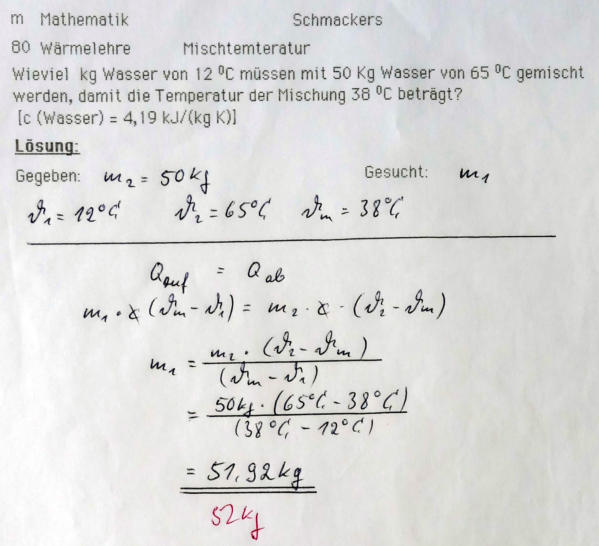 m Mathematik Schmackers
80 Wärmelehre Mischtemteratur
Wieviel kg Wasser von 12 °C müssen mit 50 Kg Wasser von 65 °C gemischt
werden, damit die Temperatur der Mischung 38 °C beträgt?
[c (Wasser) = 4,19 kJ/(kg K)]
Lösung:
Gegeben: m₂ = 50kg Gesucht: m₁
ϑ₁ = 12°C ϑ₂ = 65°C ϑm = 38°C
Qauf = Qab
m₁ · c (ϑm - ϑ₁) = m₂ · c · (ϑ₂ - ϑm)
m₁ = m₂ · (ϑ₂ - ϑm) / (ϑm - ϑ₁)
= 50kg · (65°C - 38°C) / (38°C - 12°C)
= 51,92kg
52kg